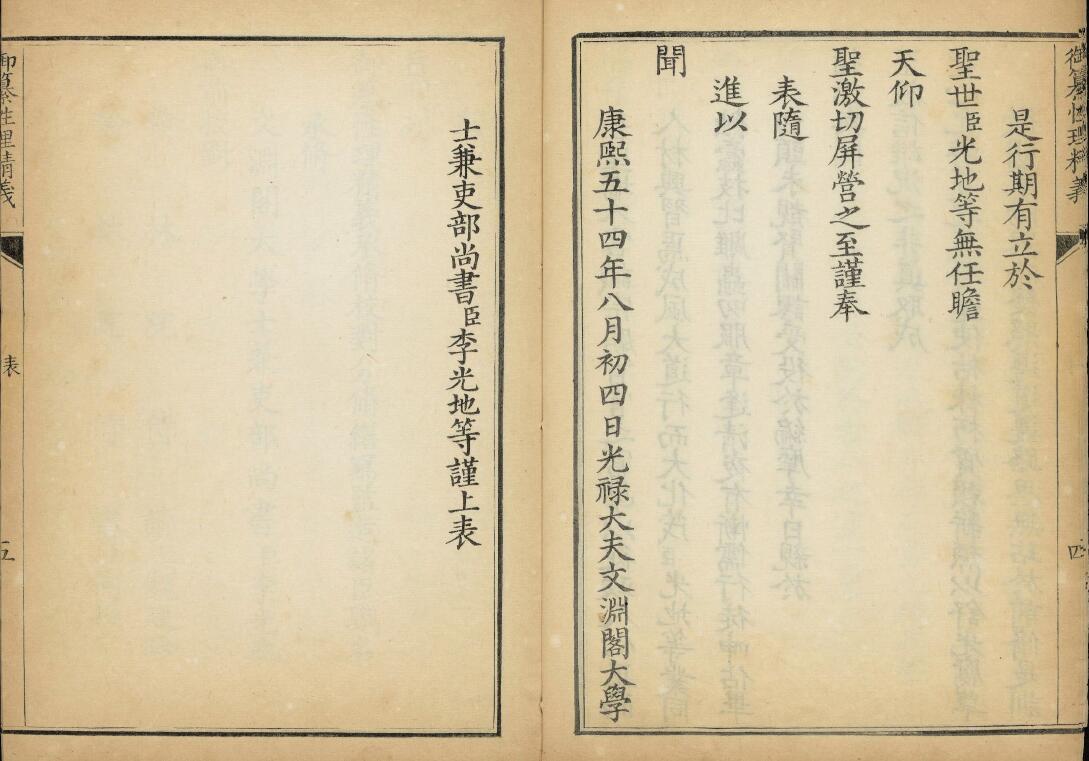 御纂性理精義
四
是行期有立於
聖世臣光地等無任瞻
天仰
聖激切屏營之至謹奉
表隨
進以
聞
康熙五十四年八月初四日光祿大夫文淵閣大學
士兼吏部尚書臣李光地等謹上表
御纂性理精義
表
五